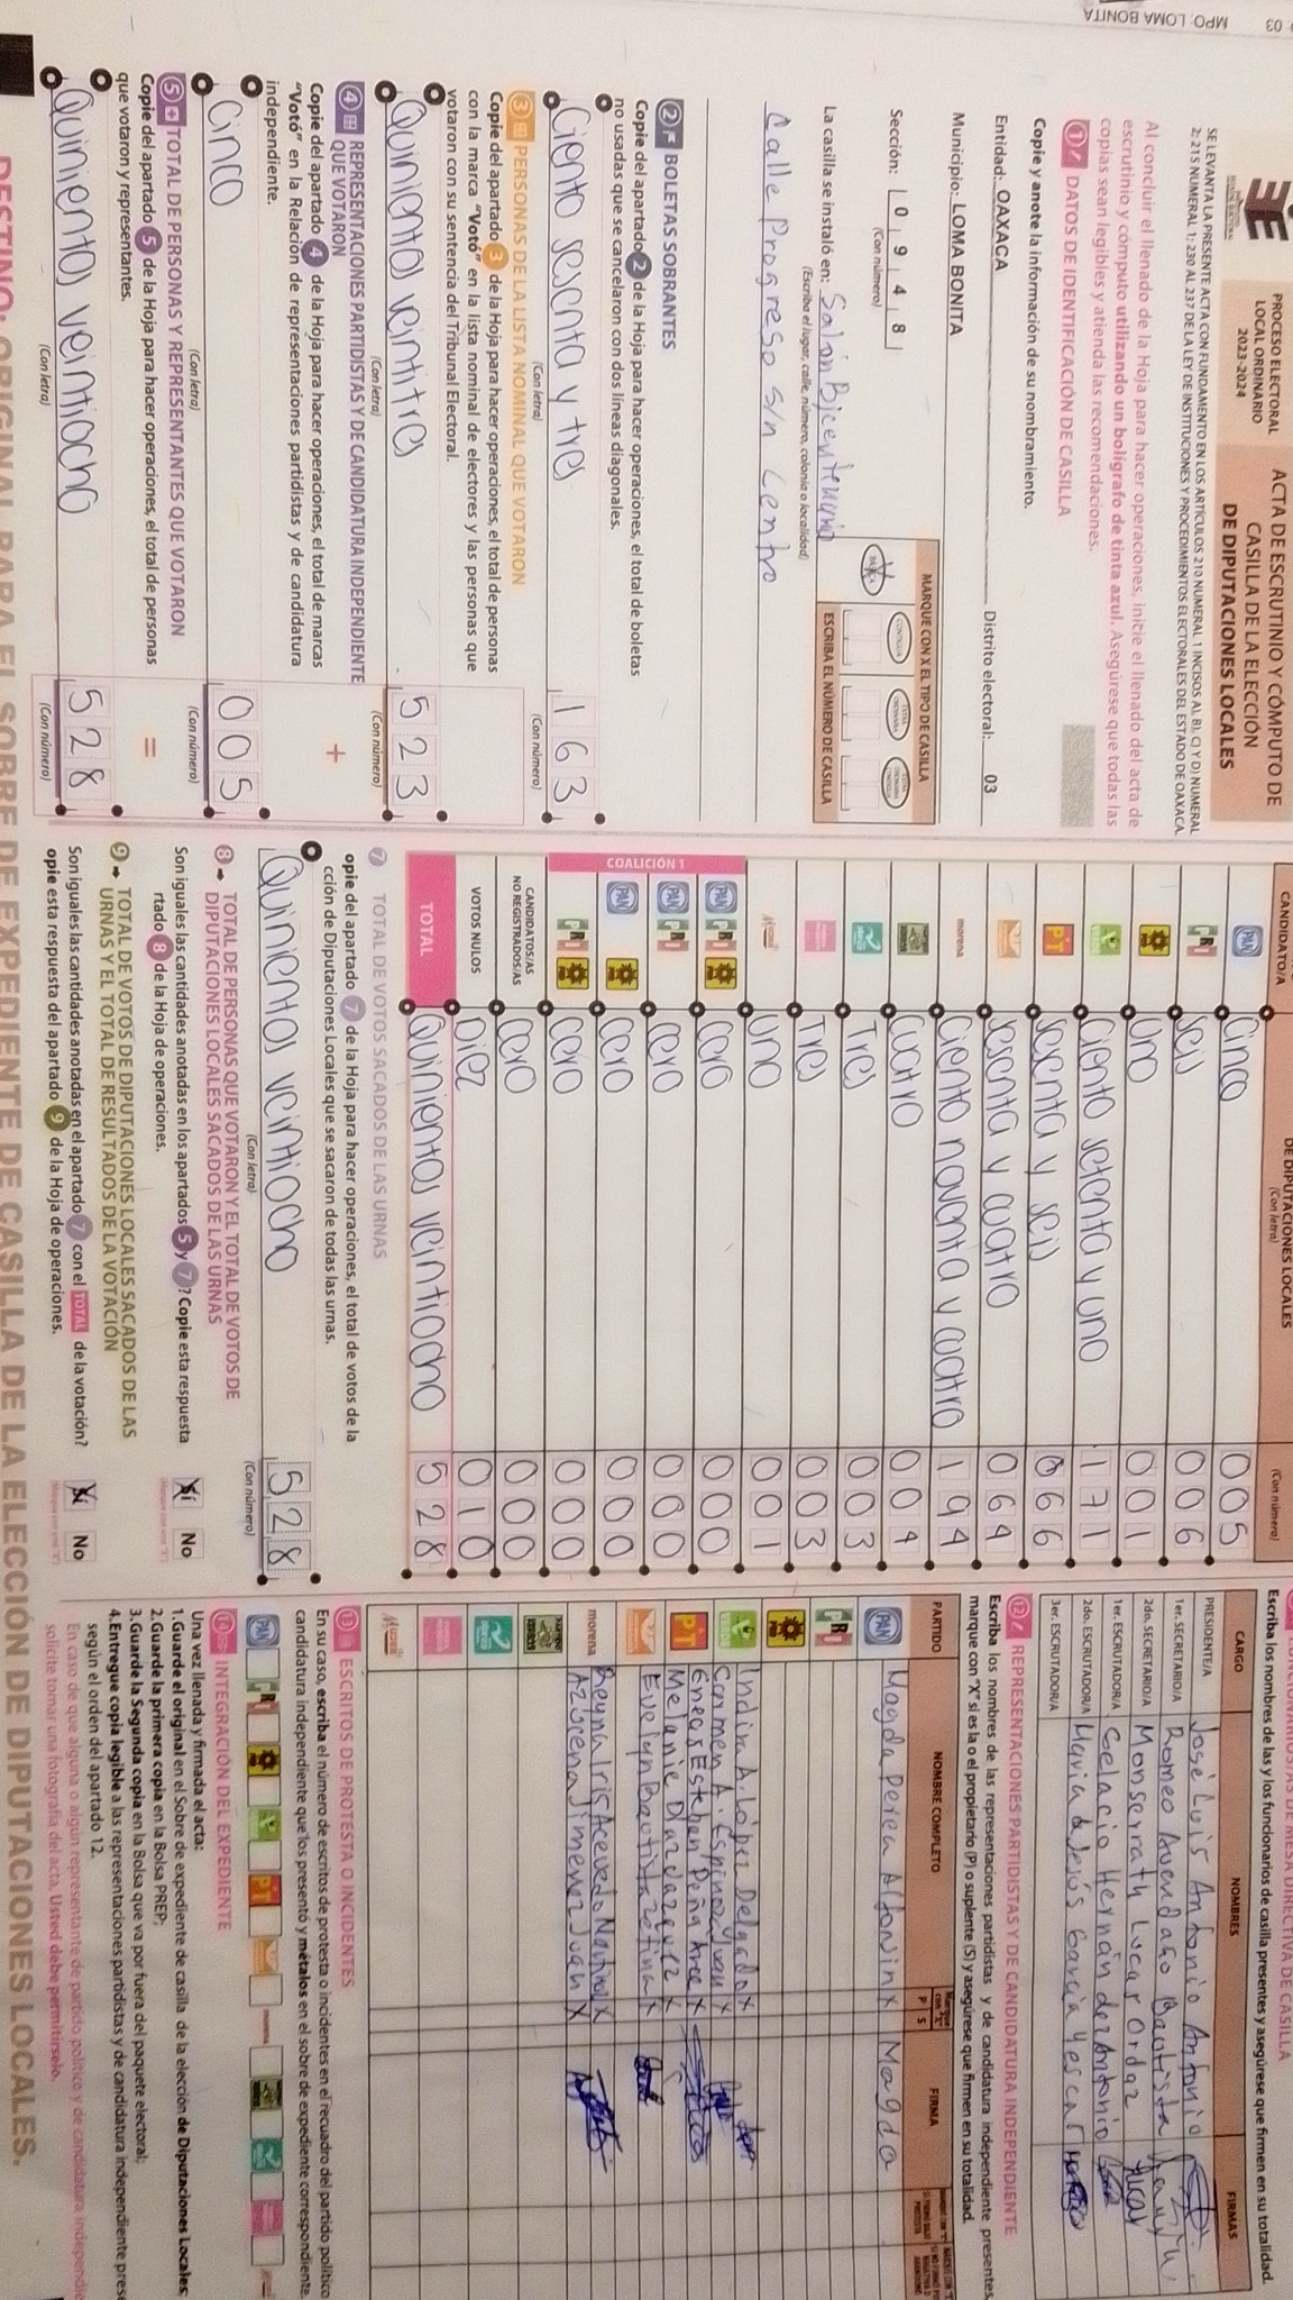 03 MPO: LOMA BONITA
PROCESO ELECTORAL
LOCAL ORDINARIO
2023-2024
ACTA DE ESCRUTINIO Y CÓMPUTO DE
CASILLA DE LA ELECCIÓN
DE DIPUTACIONES LOCALES
SE LEVANTA LA PRESENTE ACTA CON FUNDAMENTO EN LOS ARTÍCULOS 210 NUMERAL 1 INCISOS A), B), C) Y D) NUMERAL
2; 215 NUMERAL 1; 230 AL 237 DE LA LEY DE INSTITUCIONES Y PROCEDIMIENTOS ELECTORALES DEL ESTADO DE OAXACA.
Al concluir el llenado de la Hoja para hacer operaciones, inicie el llenado del acta de
escrutinio y cómputo utilizando un bolígrafo de tinta azul. Asegúrese que todas las
copias sean legibles y atienda las recomendaciones.
1 DATOS DE IDENTIFICACIÓN DE CASILLA
Copie y anote la información de su nombramiento.
Entidad: OAXACA Distrito electoral: 03
Municipio: LOMA BONITA
Sección: 0 9 4 8
(Con número)
MARQUE CON X EL TIPO DE CASILLA
ESCRIBA EL NÚMERO DE CASILLA
La casilla se instaló en: Salón Bicentenario
(Escriba el lugar, calle, número, colonia o localidad)
Calle Progreso s/n Centro
2 BOLETAS SOBRANTES
Copie del apartado 2 de la Hoja para hacer operaciones, el total de boletas
no usadas que se cancelaron con dos líneas diagonales.
Ciento sesenta y tres 163
(Con letra) (Con número)
3 PERSONAS DE LA LISTA NOMINAL QUE VOTARON
Copie del apartado 3 de la Hoja para hacer operaciones, el total de personas
con la marca "Votó" en la lista nominal de electores y las personas que
votaron con su sentencia del Tribunal Electoral.
Quinientos veintitres 523
(Con letra) (Con número)
4 REPRESENTACIONES PARTIDISTAS Y DE CANDIDATURA INDEPENDIENTE
QUE VOTARON
Copie del apartado 4 de la Hoja para hacer operaciones, el total de marcas
"Votó" en la Relación de representaciones partidistas y de candidatura
independiente.
+
Cinco 005
(Con letra) (Con número)
5 TOTAL DE PERSONAS Y REPRESENTANTES QUE VOTARON
Copie del apartado 5 de la Hoja para hacer operaciones, el total de personas
que votaron y representantes.
=
Quinientos veintiocho 528
(Con letra) (Con número)
CANDIDATO/A DE DIPUTACIONES LOCALES
(Con letra) (Con número)
PAN Cinco 005
PRI seis 006
Uno 001
Ciento setenta y uno 171
PT sesenta y seis 066
sesenta y cuatro 064
morena Ciento noventa y cuatro 194
Cuatro 004
Tres 003
Tres 003
uno 001
COALICIÓN 1
PAN PRI Cero 000
PAN PRI Cero 000
PAN Cero 000
PRI Cero 000
CANDIDATOS/AS
NO REGISTRADOS/AS Cero 000
VOTOS NULOS Diez 010
TOTAL Quinientos veintiocho 528
7 TOTAL DE VOTOS SACADOS DE LAS URNAS
opie del apartado 7 de la Hoja para hacer operaciones, el total de votos de la
cción de Diputaciones Locales que se sacaron de todas las urnas.
Quinientos veintiocho 528
(Con letra) (Con número)
8 TOTAL DE PERSONAS QUE VOTARON Y EL TOTAL DE VOTOS DE
DIPUTACIONES LOCALES SACADOS DE LAS URNAS
Son iguales las cantidades anotadas en los apartados 5 y 7? Copie esta respuesta
rtado 8 de la Hoja de operaciones.
Sí No
9 TOTAL DE VOTOS DE DIPUTACIONES LOCALES SACADOS DE LAS
URNAS Y EL TOTAL DE RESULTADOS DE LA VOTACIÓN
Son iguales las cantidades anotadas en el apartado 7 con el TOTAL de la votación?
opie esta respuesta del apartado 9 de la Hoja de operaciones.
Sí No
MESA DIRECTIVA DE CASILLA
Escriba los nombres de las y los funcionarios de casilla presentes y asegúrese que firmen en su totalidad.
CARGO NOMBRES FIRMAS
PRESIDENTE/A José Luis Antonio Antonio
1er. SECRETARIO/A Romeo Avendaño Bautista
2do. SECRETARIO/A Monserrath Lucar Ordaz
1er. ESCRUTADOR/A Gelacio Hernández Antonio
2do. ESCRUTADOR/A Maria de Jesús García Yescar
3er. ESCRUTADOR/A
12 REPRESENTACIONES PARTIDISTAS Y DE CANDIDATURA INDEPENDIENTE
Escriba los nombres de las representaciones partidistas y de candidatura independiente presentes,
marque con "X" si es la o el propietario (P) o suplente (S) y asegúrese que firmen en su totalidad.
PARTIDO NOMBRE COMPLETO P S FIRMA
PAN Magda Perea Alfonin X Magda
PRI
Indira A. López Delgado X
Carmen A. Espinoza Juan X
PT Eneas Esteban Peña Arce X
Melanie Diaz Vazquez X
Evelyn Bautista Zetina X
morena Reyna Iris Acevedo X
Azucena Jimenez Juan X
13 ESCRITOS DE PROTESTA O INCIDENTES
En su caso, escriba el número de escritos de protesta o incidentes en el recuadro del partido político
candidatura independiente que los presentó y métalos en el sobre de expediente correspondiente.
PAN PRI PT morena
14 INTEGRACIÓN DEL EXPEDIENTE
Una vez llenada y firmada el acta:
1.Guarde el original en el Sobre de expediente de casilla de la elección de Diputaciones Locales;
2.Guarde la primera copia en la Bolsa PREP;
3.Guarde la Segunda copia en la Bolsa que va por fuera del paquete electoral;
4.Entregue copia legible a las representaciones partidistas y de candidatura independiente pres
según el orden del apartado 12.
En caso de que alguna o algún representante de partido político y de candidatura independie
solicite tomar una fotografía del acta. Usted debe permitírselo.
DESTINO: ORIGINAL PARA EL SOBRE DE EXPEDIENTE DE CASILLA DE LA ELECCIÓN DE DIPUTACIONES LOCALES.